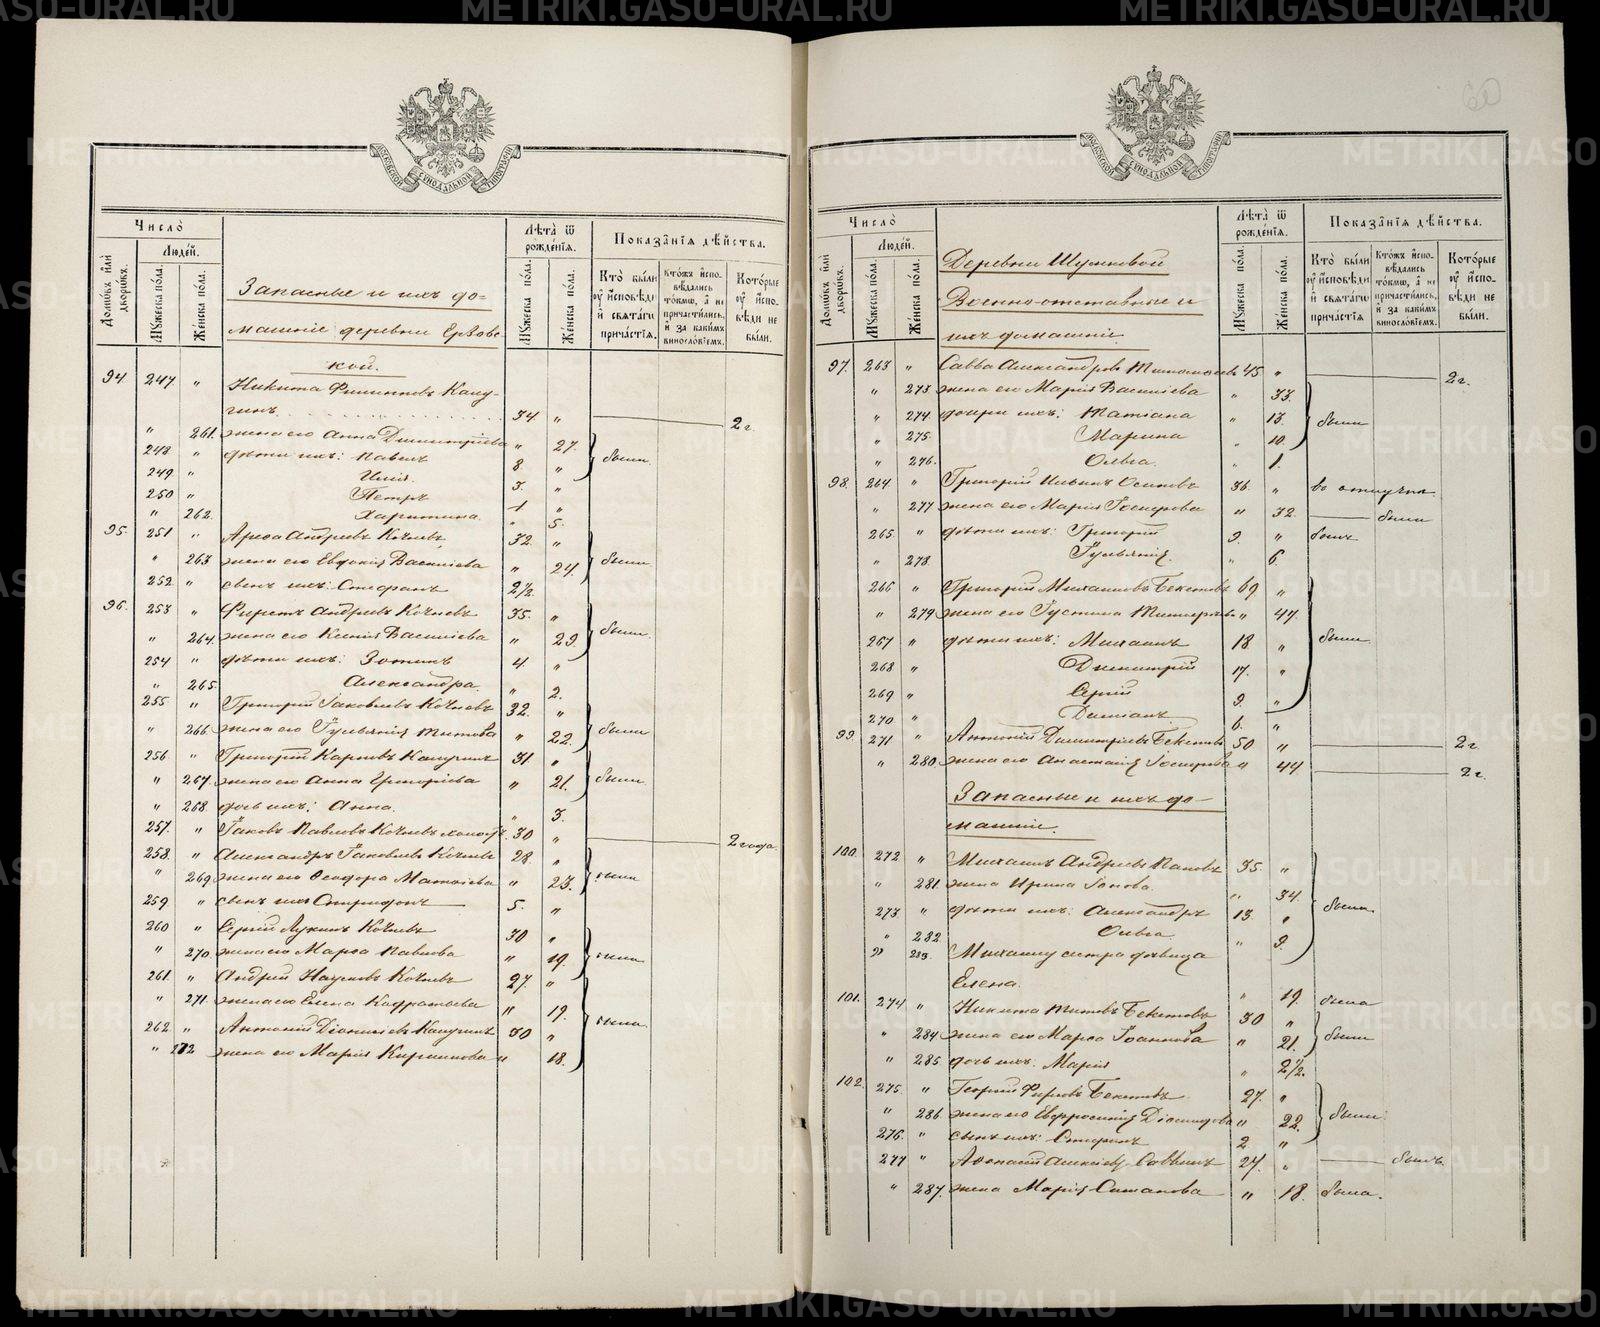 METRIKI.GASO-URAL.RU
60
МОСКОВСКОЙ СѴНОДАЛЬНОЙ ТИПОГРАФІИ
Число̀
Людей.
Домѡвъ или дворѡвъ.
Мꙋжеска пола.
Женска пола.
Лѣта ѿ рожденїѧ.
Мꙋжеска пола.
Женска пола.
Показанїѧ дѣйства.
Кто были ѹ исповѣди и свѧтагѡ причастїѧ.
Ктожъ исповѣдались токмѡ, а не причастились, и за какимъ винословїемъ.
Которые ѹ исповѣди не были.
Запасные и ихъ до-
машніе деревни
кой.
94. 247 " Никита Филипповъ Калу-
гинъ 34 " 2 г.
" 261. жена его Анна Димитріева " 27.
248 " дѣти ихъ: Павелъ 8. " были.
249 " Илія 3. "
250 " Петръ 1 "
" 262. Харитина. " 5.
95. 251 " Андреевъ Кочневъ 32. "
" 263 жена его Евдокія Василіева " 24. были
252 " сынъ ихъ: Стефанъ 2½
96. 253 " Андреевъ Кочневъ 35. "
" 264. жена его Ксенія Василіева " 29. были.
254 " дѣти ихъ: Зотикъ 4. "
" 265. Александра. " 2.
255 " Григорій Іаковлевъ Кочневъ 32. "
" 266. жена его Іуліанія Титова " 22. были
256 " Григорій Карповъ Калугинъ 31 "
" 267. жена его Анна Григоріева " 21. были
" 268. дочь ихъ: Анна. " 3.
257. " Іаковъ Павловъ Кочневъ холостъ. 30 " 2 года.
258. " Александръ Іаковлевъ Кочневъ 28 "
" 269. жена его Ѳеодора Матѳіева " 23. были
259 " сынъ ихъ Спиридонъ 5. "
260 " Сергій Лукинъ Кочневъ 30 "
" 270. жена его Марѳа Павлова " 19. были
261. " Андрей Наумовъ Кочневъ 27. "
" 271. жена его Елена Кодратова " 19.
262. " Антоній Діонисіевъ Калугинъ 30 " были
" 272 жена его Марія Кириллова " 18.
Число̀
Людей.
Домѡвъ или дворѡвъ.
Мꙋжеска пола.
Женска пола.
Лѣта ѿ рожденїѧ.
Мꙋжеска пола.
Женска пола.
Показанїѧ дѣйства.
Кто были ѹ исповѣди и свѧтагѡ причастїѧ
Ктожъ исповѣдались токмѡ, а не причастились, и за какимъ винословїемъ.
Которые ѹ исповѣди не были.
Деревни Шумковой
Военно-отставные и
ихъ домашніе.
97. 263 " Савва Александровъ 45 " 2 г.
" 273 жена его Марія Василіева " 33.
" 274. дочери ихъ: Татіана " 13. были
" 275. Марина " 10.
" 276. Ольга. " 1.
98. 264 " Григорій Ильинъ Осиповъ 36. " въ отлучкѣ
" 277 жена его Марія Іосифова " 32. были
265. " дѣти ихъ: Григорій 9. " былъ
" 278. Іуліанія. " 6.
266 " Григорій Михаиловъ Бекетовъ 69 "
" 279 жена его Іустина " 47.
267 " дѣти ихъ: Михаилъ 18. " были
268 " Димитрій 17. "
269 " Сергій 9. "
270 " Даміанъ 6. "
99. 271 " Антоній Димитріевъ Бекетовъ 50 " 2 г
" 280. жена его Анастасія Іосифова " 44 2 г.
Запасные и ихъ до-
машніе.
100. 272 " Михаилъ Андреевъ Пановъ 35. "
" 281 жена Ирина Іонова. " 34.
273 " дѣти ихъ: Александръ 13. " были
" 282. Ольга " 9.
" 283. Михаилу сестра дѣвица
Елена. " 19. была
101. 274 " Никита Титовъ Бекетовъ 30 "
" 284 жена его Марѳа Іоаннова " 21. были
" 285 дочь ихъ. Марія " 2½.
102. 275. " Георгій Бекетовъ 27. "
" 286. жена его Евфросинія " 22. были
276. " сынъ ихъ: Стефанъ 2 "
277 " Аѳанасій Алексіевъ 24. " былъ
" 287. жена Марія " 18. была.